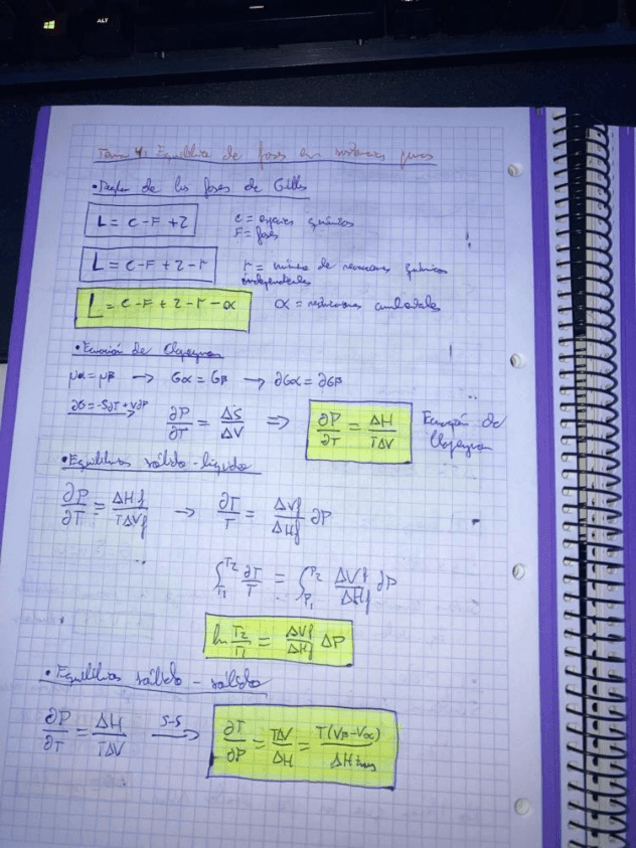 ALT
Tema 4: Equilibrio de fases en sustancias puras
• Reglas de las fases de Gibbs
L = C - F + 2
C = especies químicas
F = fases
L = C - F + 2 - r
r = número de reacciones químicas
independientes
L = C - F + 2 - r - α
α = restricciones
• Ecuación de Clapeyron
μα = μβ → Gα = Gβ → ∂Gα = ∂Gβ
∂G = -S∂T + V∂P → ∂P/∂T = ΔS/ΔV ⇒ ∂P/∂T = ΔH/TΔV Ecuación de
Clapeyron
• Equilibrios sólido - líquido
∂P/∂T = ΔHf/TΔVf → ∂T/T = ΔVf/ΔHf ∂P
∫_T1^T2 ∂T/T = ∫_P1^P2 ΔVf/ΔHf ∂P
ln T2/T1 = ΔVf/ΔHf ΔP
• Equilibrios sólido - sólido
∂P/∂T = ΔH/TΔV S-S → ∂T/∂P = TΔV/ΔH = T(Vβ - Vα)/ΔH trans